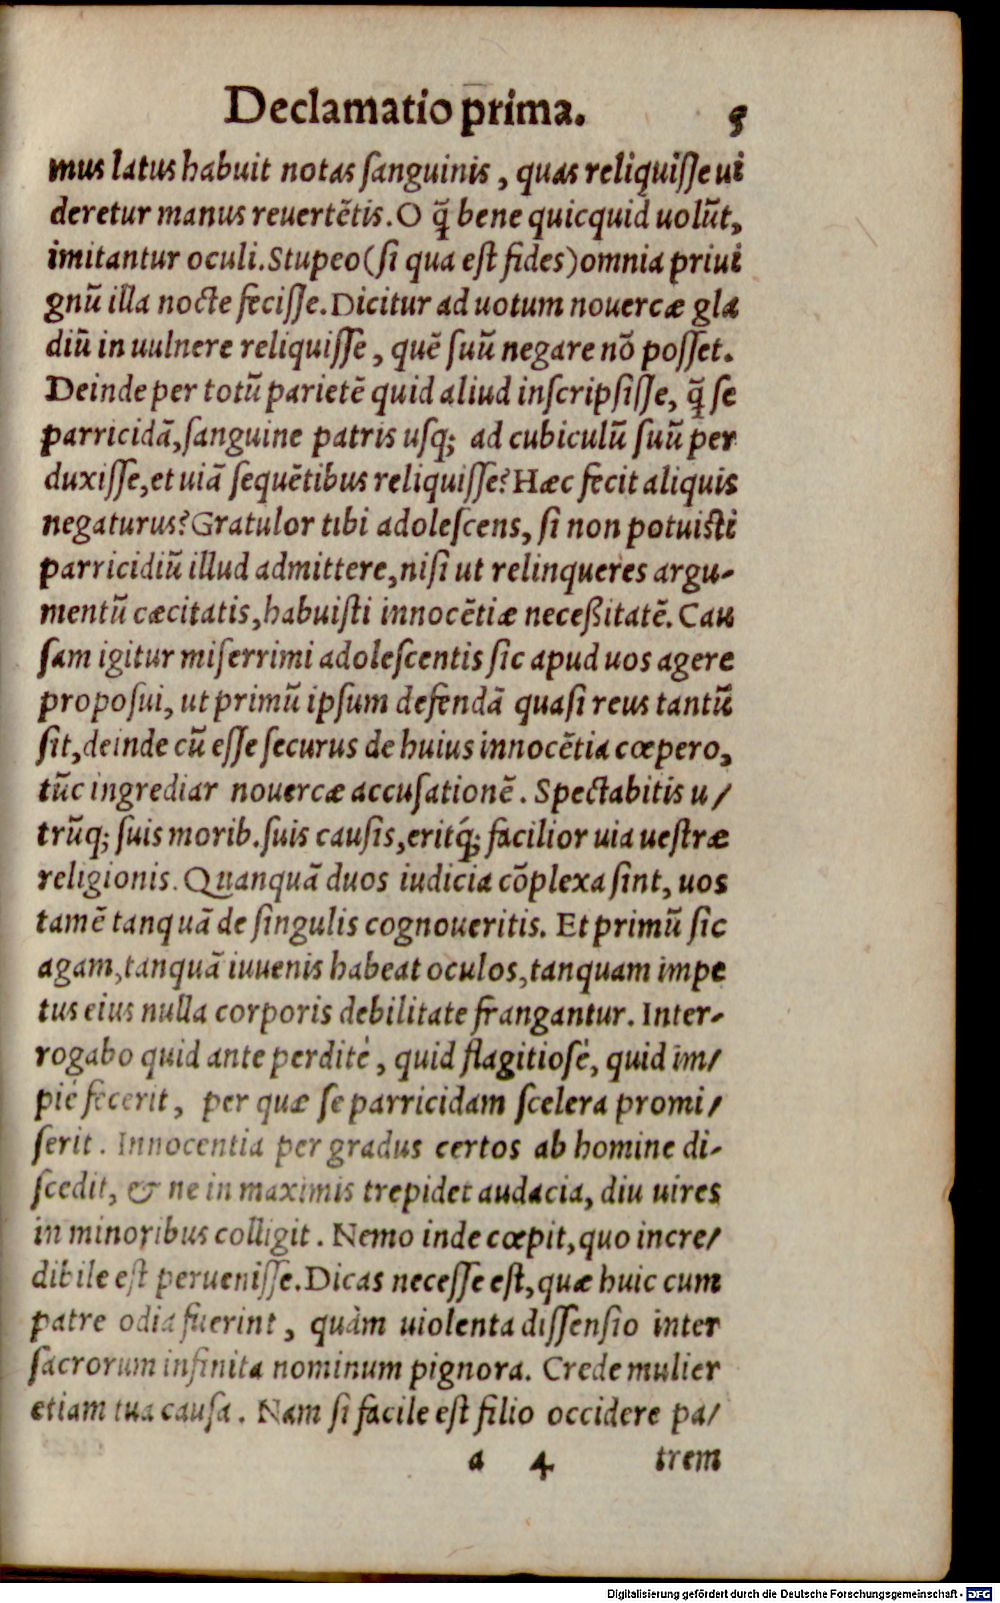 Declamatio prima. 5
mus latus habuit notas sanguinis, quas reliquisse ui
deretur manus reuertẽtis. O q̃ bene quicquid uolũt,
imitantur oculi. Stupeo (si qua est fides) omnia priui
gnũ illa nocte fecisse. Dicitur ad uotum nouercæ gla
diũ in uulnere reliquisse, quẽ suũ negare nõ posset.
Deinde per totũ parietẽ quid aliud inscripsisse, q̃ se
parricidã, sanguine patris usq; ad cubiculũ suũ per
duxisse, et uiã sequẽtibus reliquisse? Hæc fecit aliquis
negaturus? Gratulor tibi adolescens, si non potuisti
parricidiũ illud admittere, nisi ut relinqueres argu-
mentũ cæcitatis, habuisti innocẽtiæ neceßitatẽ. Cau
sam igitur miserrimi adolescentis sic apud uos agere
proposui, ut primũ ipsum defendã quasi reus tantũ
sit, deinde cũ esse securus de huius innocẽtia cœpero,
tũc ingrediar nouercæ accusationẽ. Spectabitis u/
trũq; suis morib. suis causis, eritq́; facilior uia uestræ
religionis. Quanquã duos iudicia cõplexa sint, uos
tamẽ tanquã de singulis cognoueritis. Et primũ sic
agam, tanquã iuuenis habeat oculos, tanquam impe
tus eius nulla corporis debilitate frangantur. Inter-
rogabo quid ante perditè, quid flagitiosè, quid im/
piè fecerit, per quæ se parricidam scelera promi/
serit. Innocentia per gradus certos ab homine di-
scedit, & ne in maximis trepidet audacia, diu uires
in minoribus colligit. Nemo inde cœpit, quo incre/
dibile est peruenisse. Dicas necesse est, quæ huic cum
patre odia fuerint, quàm uiolenta dissensio inter
sacrorum infinita nominum pignora. Crede mulier
etiam tua causa. Nam si facile est filio occidere pa/
a 4 trem
Digitalisierung gefördert durch die Deutsche Forschungsgemeinschaft - DFG